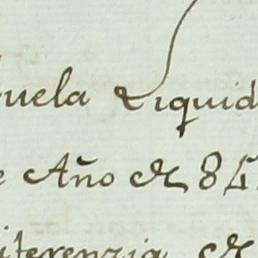 uela Liquid
e Año de 84
iferenzia de